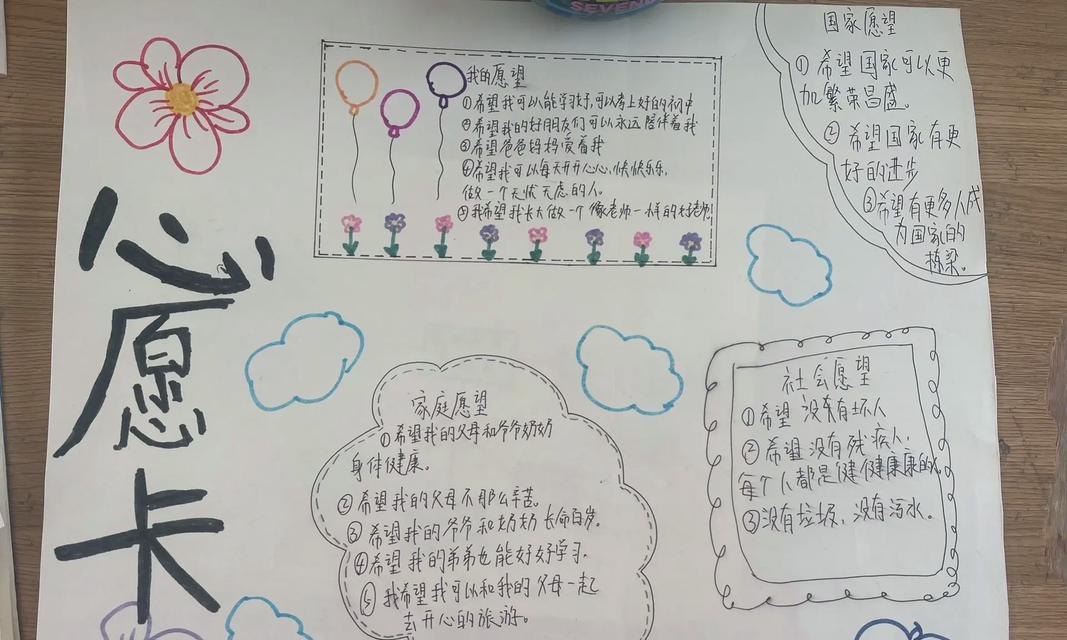 SEVEN
心愿卡
我的愿望
①希望我可以能学习好,可以考上好的初中
②希望我的好朋友们可以永远陪伴着我
③希望爸爸妈妈爱着我
④希望我可以每天开开心心,快快乐乐,
做一个无忧无虑的人。
⑤我希望我长大做一个像老师一样的好老师!
国家愿望
①希望国家可以更
加繁荣昌盛。
②希望国家有更
好的进步
③希望有更多人成
为国家的
栋梁。
家庭愿望
①希望我的父母和爷爷奶奶
身体健康。
②希望我的父母不那么辛苦。
③希望我的爷爷和奶奶长命百岁。
④希望我的弟弟也能好好学习.
⑤我希望我可以和我的父母一起
去开心的旅游。
社会愿望
①希望没有坏人
②希望没有残疾人.
每个人都是健健康康的人
③没有垃圾,没有污水。